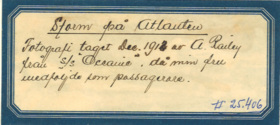 Storm på Atlanten
Fotografi taget Dec. 1912 av A Railey
från S/S "Oceanic" då min fru
medföljde som passagerare.
# 25.406